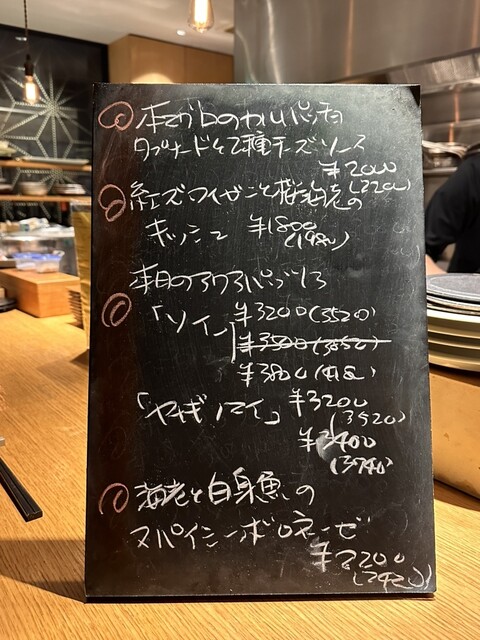 本マグロのカルパッチョ
タプナードと2種チーズソース
¥2000
(2200)
紅ズワイガニと桜海老の
キッシュ ¥1800
(1980)
本日のアクアパッツァ
「ソイ」 ¥3200(3520)
¥3800(418
「ヤギノマイ」 ¥3200
(3520)
¥3400
(3740)
海老と白身魚の
スパイシーボロネーゼ
¥2200
(2420)